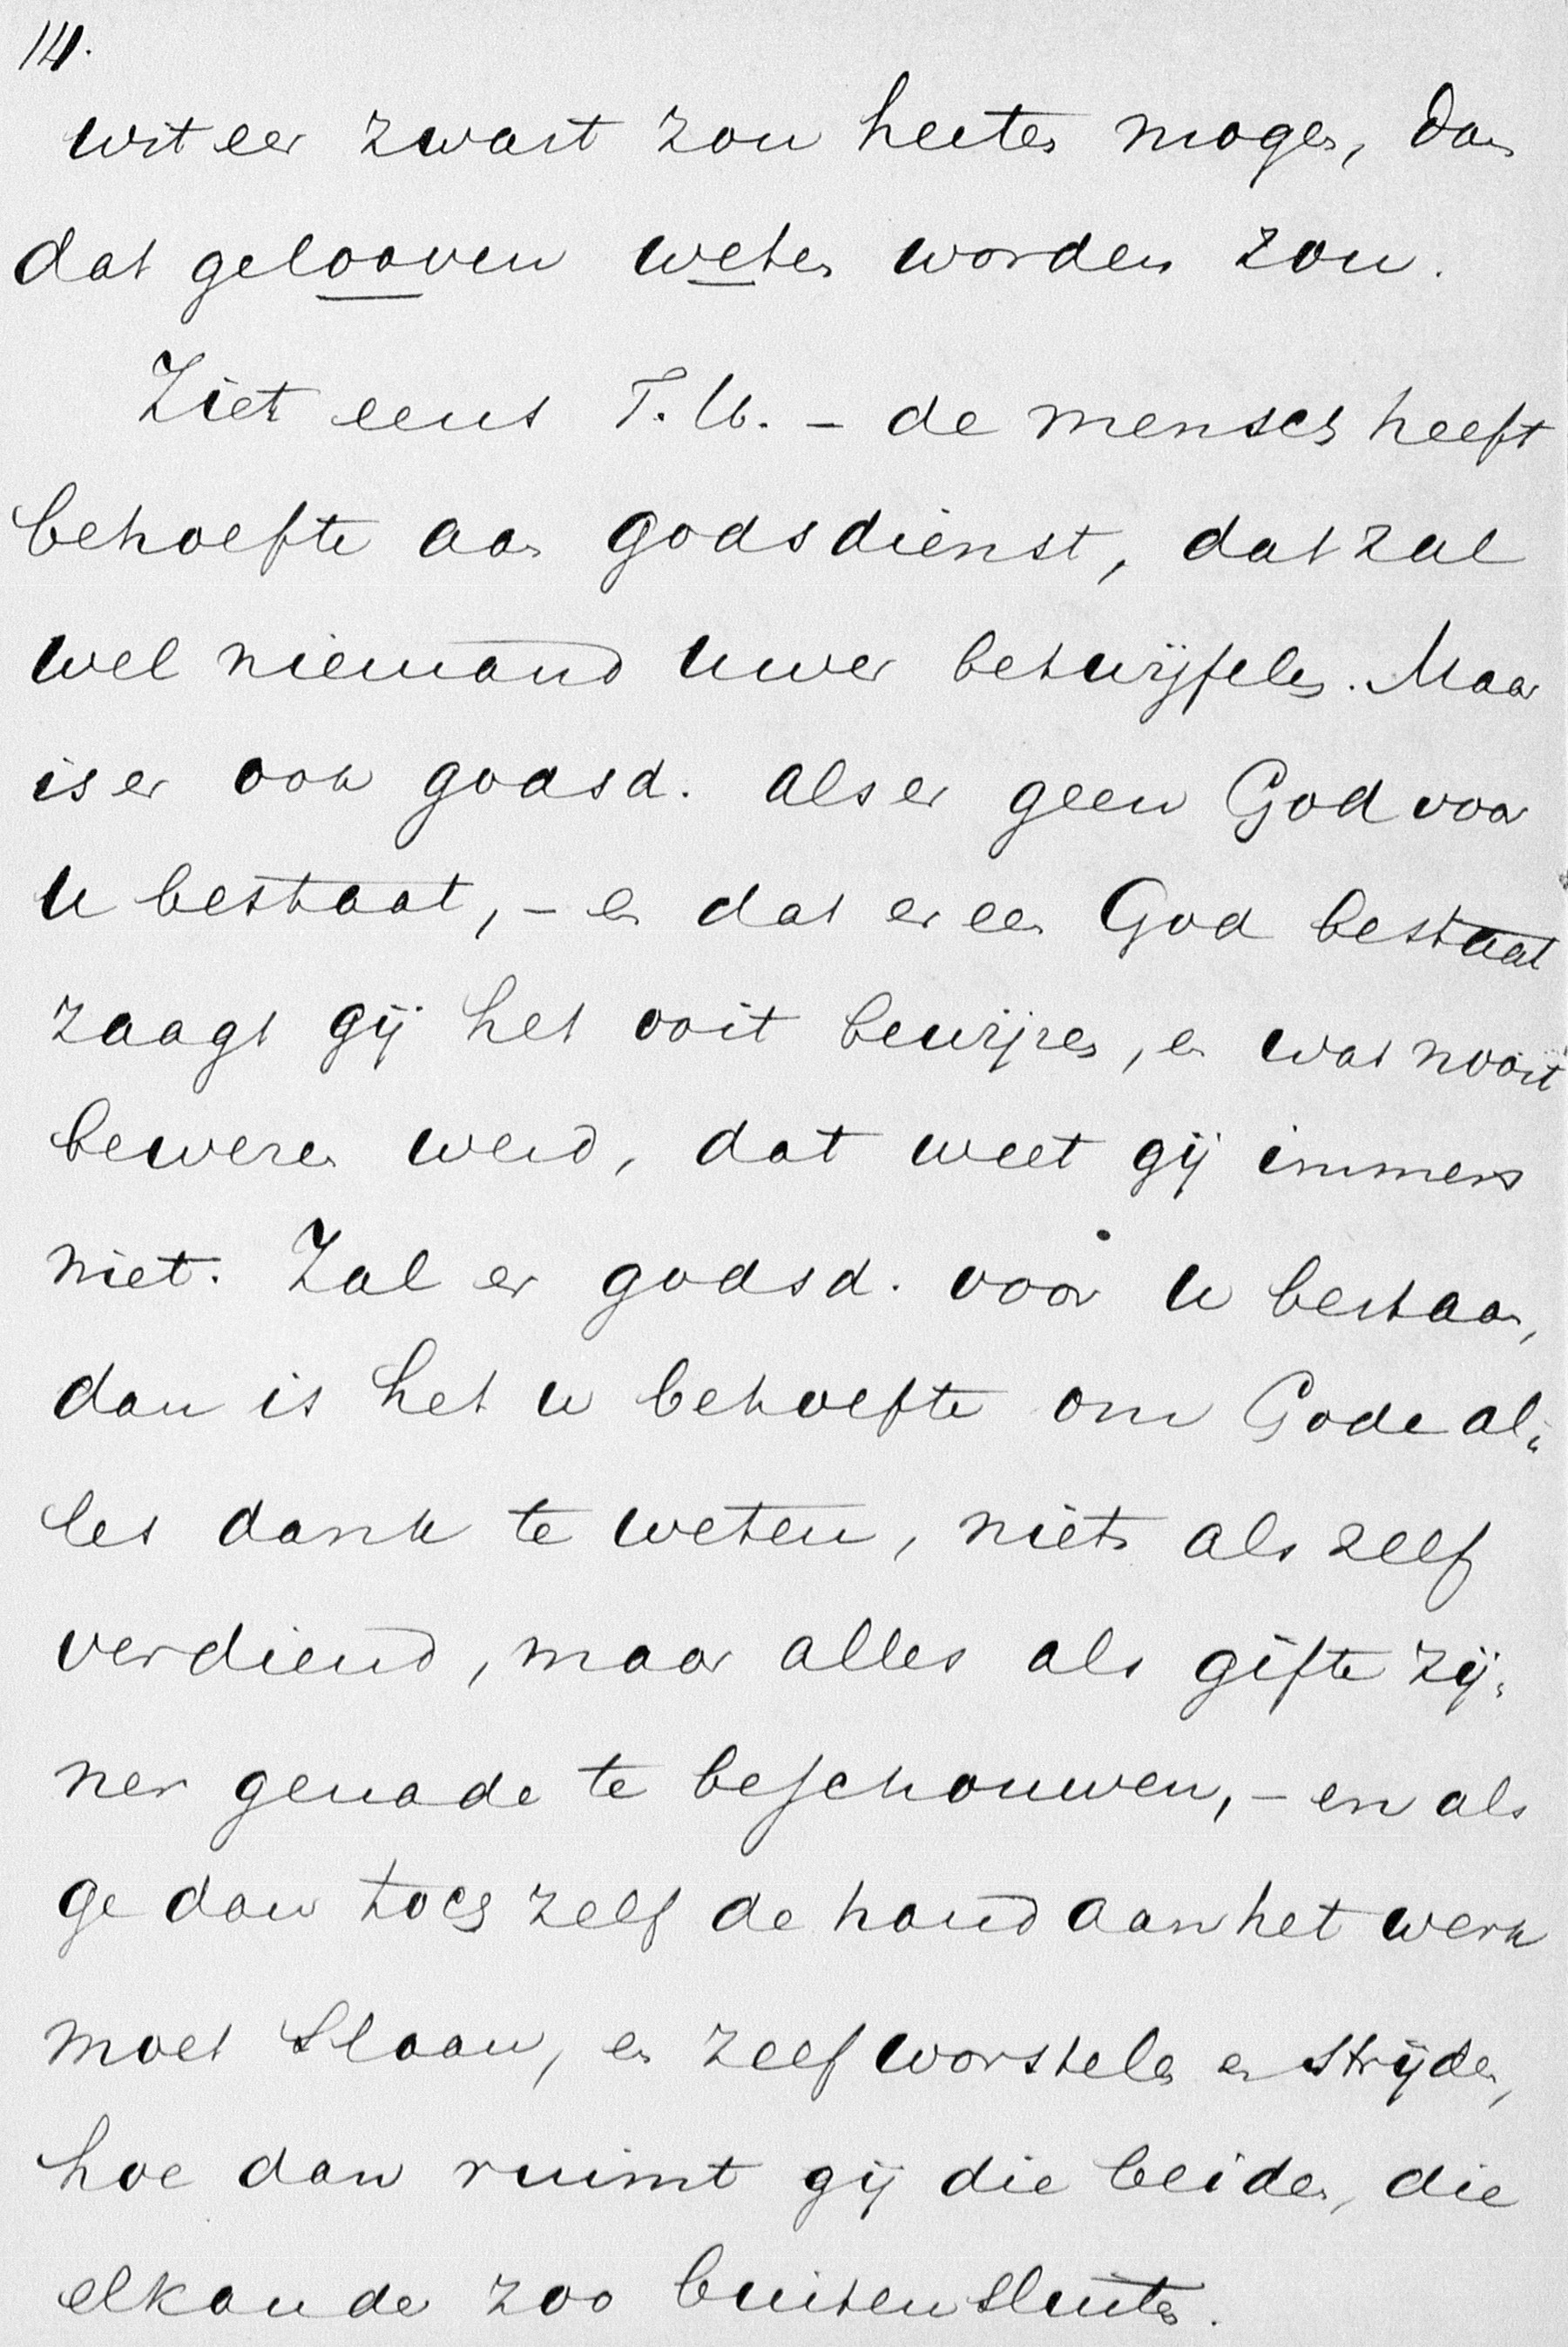 14.
wit eer zwart zou heeten mogen, dan
dat gelooven weten worden zou.
Ziet eens T. U. - de mensch heeft
behoefte aan godsdienst, dat zal
wel niemand uwer betwijfelen. Maar
is er ook godsd. als er geen God voor
U bestaat, - en dat er een God bestaat
zaagt gij het ooit bewijzen, en wat nooit
bewezen werd, dat weet gij immers
niet. Zal er godsd. voor U bestaan,
dan is het u behoefte om Gode al„
les dank te weten, niets als zelf
verdiend, maar alles als gifte zij„
ner genade te beschouwen, - en als
ge dan toch zelf de hand aan het werk
moet slaan, en zelf worstelen en strijden,
hoe dan ruimt gij die beiden, die
elkander zoo buitensluiten.